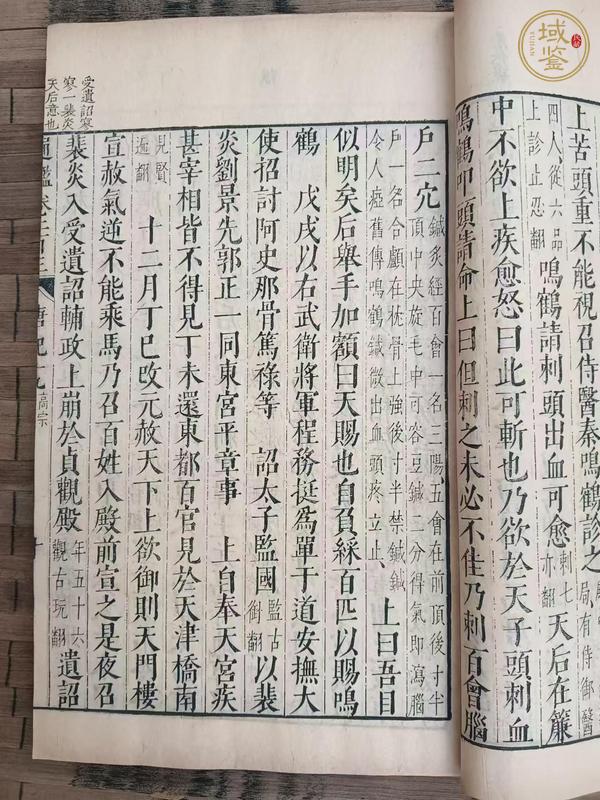 上苦頭重不能視召侍醫秦鳴鶴診之
四人從六品
上診止忍翻
鳴鶴請刺頭出血可愈
刺七
亦翻
天后在簾
中不欲上疾愈怒曰此可斬也乃欲於天子頭刺血
鳴鶴叩頭請命上曰但刺之未必不佳乃刺百會腦
戶二穴
鍼灸經百會一名三陽五會在前頂後寸半
頂中央旋毛中可容豆鍼二分得氣即瀉腦
戶一名合顱在枕骨上強後寸半禁鍼鍼
令人瘂舊傳鳴鶴鍼微出血頭疼立止
上曰吾目
似明矣后舉手加額曰天賜也自負綵百匹以賜鳴
鶴 戊戌以右武衛將軍程務挺爲單于道安撫大
使招討阿史那骨篤祿等 詔太子監國
監古
銜翻
以裴
炎劉景先郭正一同東宮平章事 上自奉天宮疾
甚宰相皆不得見丁未還東都百官見於天津橋南
見賢
遍翻
十二月丁巳改元赦天下上欲御則天門樓
宣赦氣逆不能乘馬乃召百姓入殿前宣之是夜召
裴炎入受遺詔輔政上崩於貞觀殿
年五十六
觀古玩翻
遺詔
受遺詔寥
寥一裴炎
天后意也
唐紀
高宗
域鑒
YUJIAN